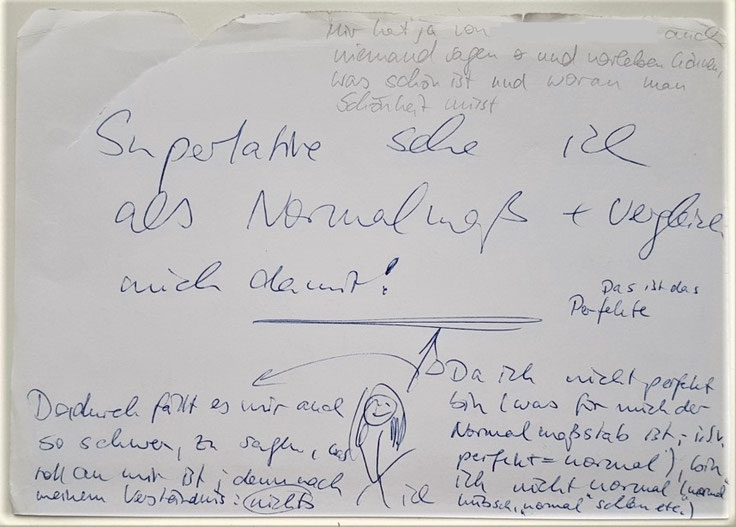 Mir hat ja von auch
niemand sagen und vorleben können,
was schön ist und woran man
Schönheit misst
Superlative sehe ich
als Normalmaß + vergleiche
mich damit!
Das ist das
Perfekte
Dadurch fällt es mir auch
so schwer, zu sagen, was
toll an mir ist; denn nach
meinem Verständnis: nichts
ich
Da ich nicht perfekt
bin (was für mich der
Normalmaßstab ist, i.S.v.
perfekt = normal), bin
ich nicht normal ("normal"
hübsch, "normal" schlau etc.)